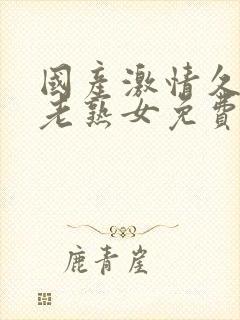 國產激情久
老熟女免費
鹿青崖